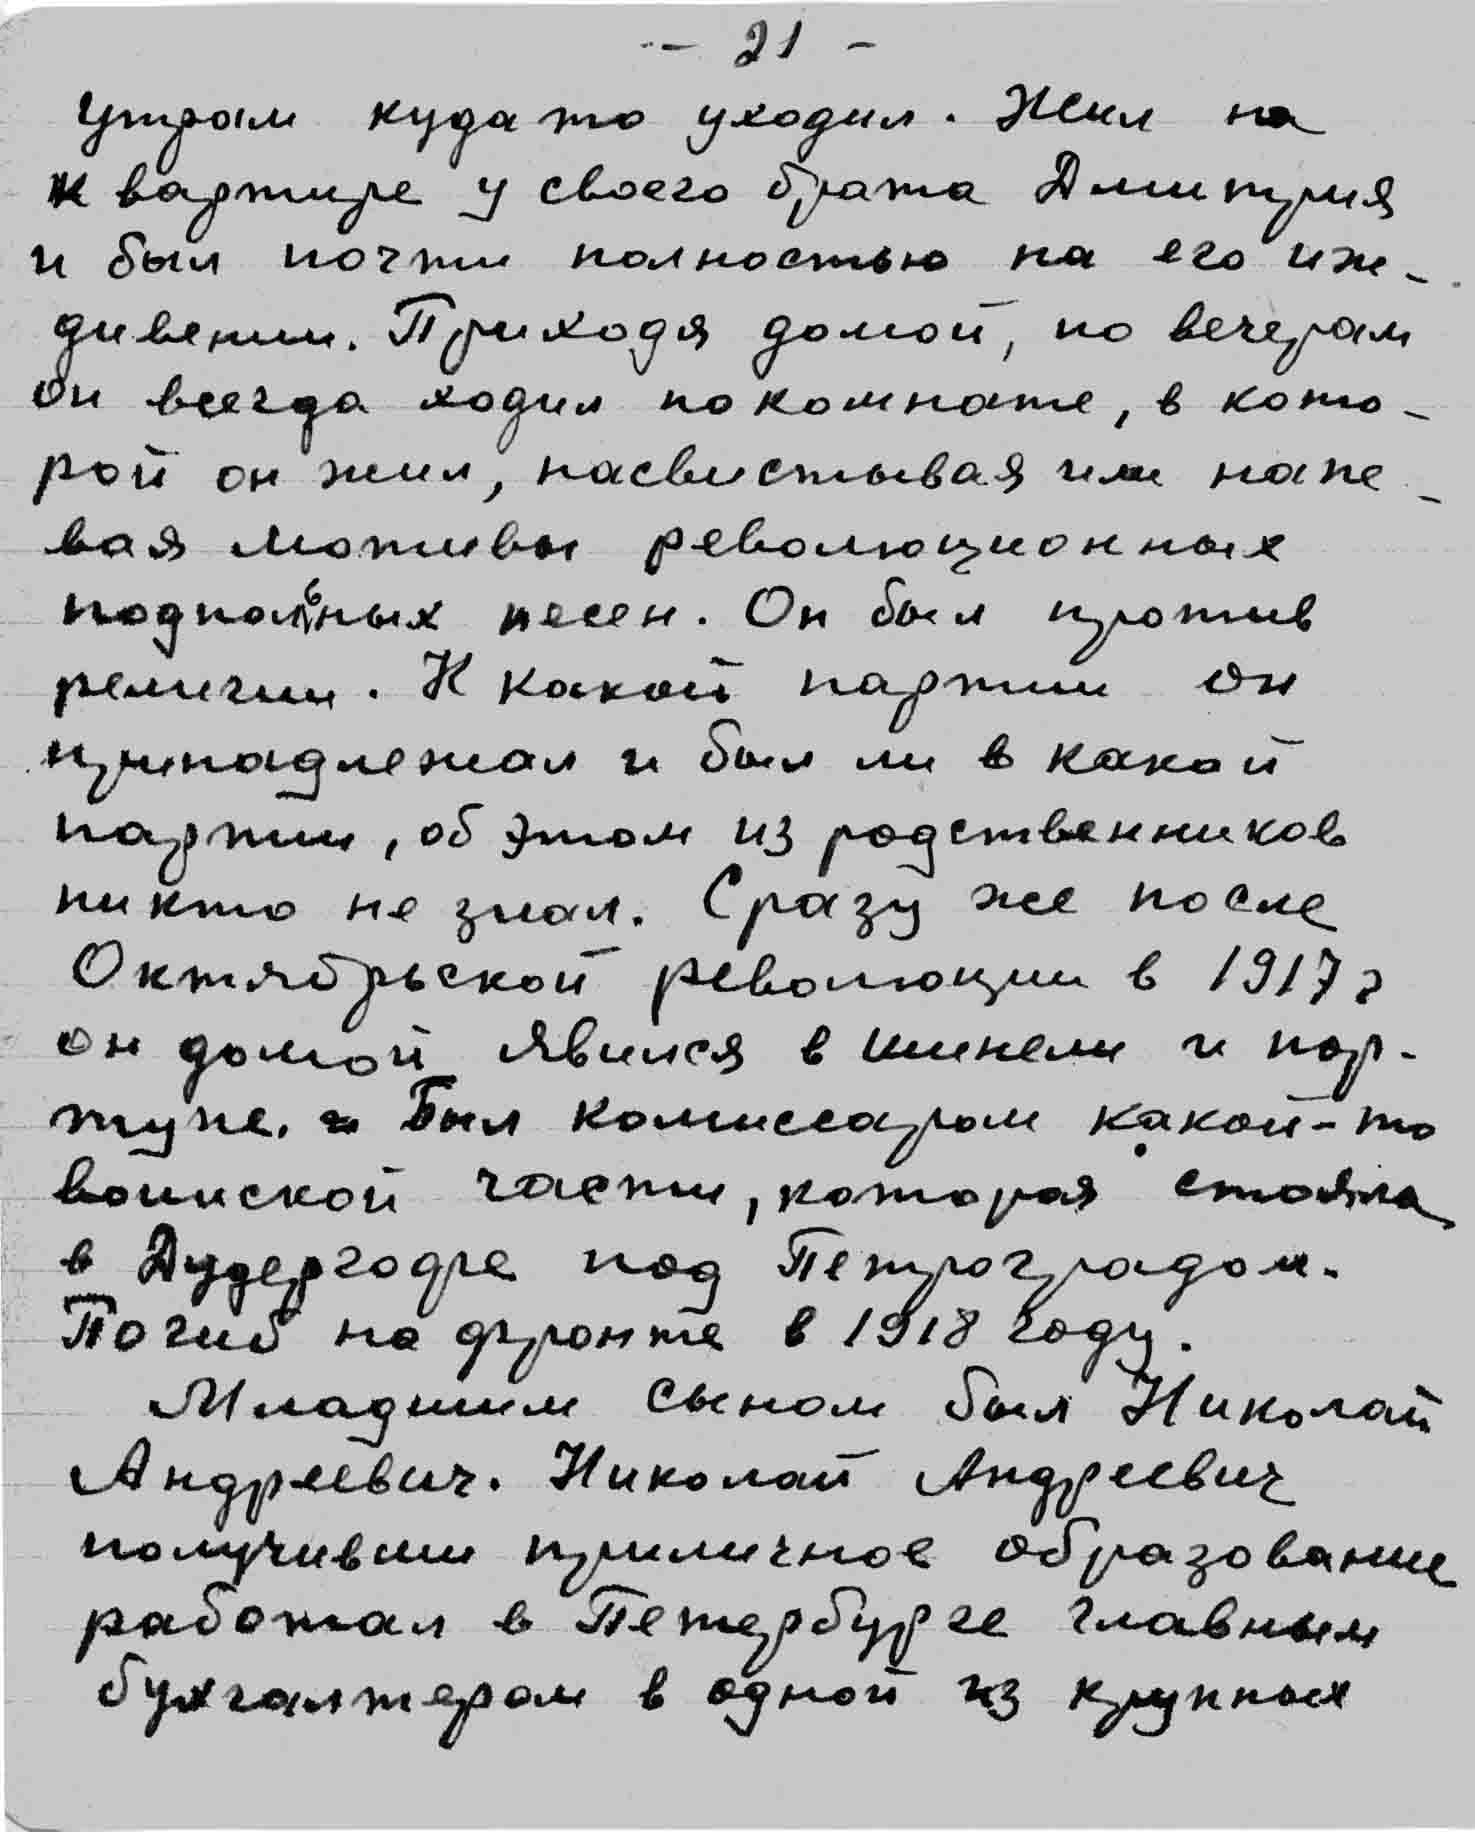 - 21 -
утрам куда то уходил. Жил на
квартире у своего брата Дмитрия
и был почти полностью на его иж-
дивении. Приходя домой, по вечерам
он всегда ходил по комнате, в кото-
рой он жил, насвистывая или напе-
вая мотивы революционных
подпольных песен. Он был против
религии. К какой партии он
принадлежал и был ли в какой
партии, об этом из родственников
никто не знал. Сразу же после
Октябрьской революции в 1917 г
он домой явился в шинели и пор-
тупе. Был комиссаром какой-то
воинской части, которая стояла
в Дудергофе под Петроградом.
Погиб на фронте в 1918 году.
Младшим сыном был Николай
Андреевич. Николай Андреевич
получивши приличное образование
работал в Петербурге главным
бухгалтером в одной из крупных